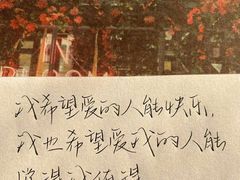 我希望爱的人能快乐,
我也希望爱我的人能